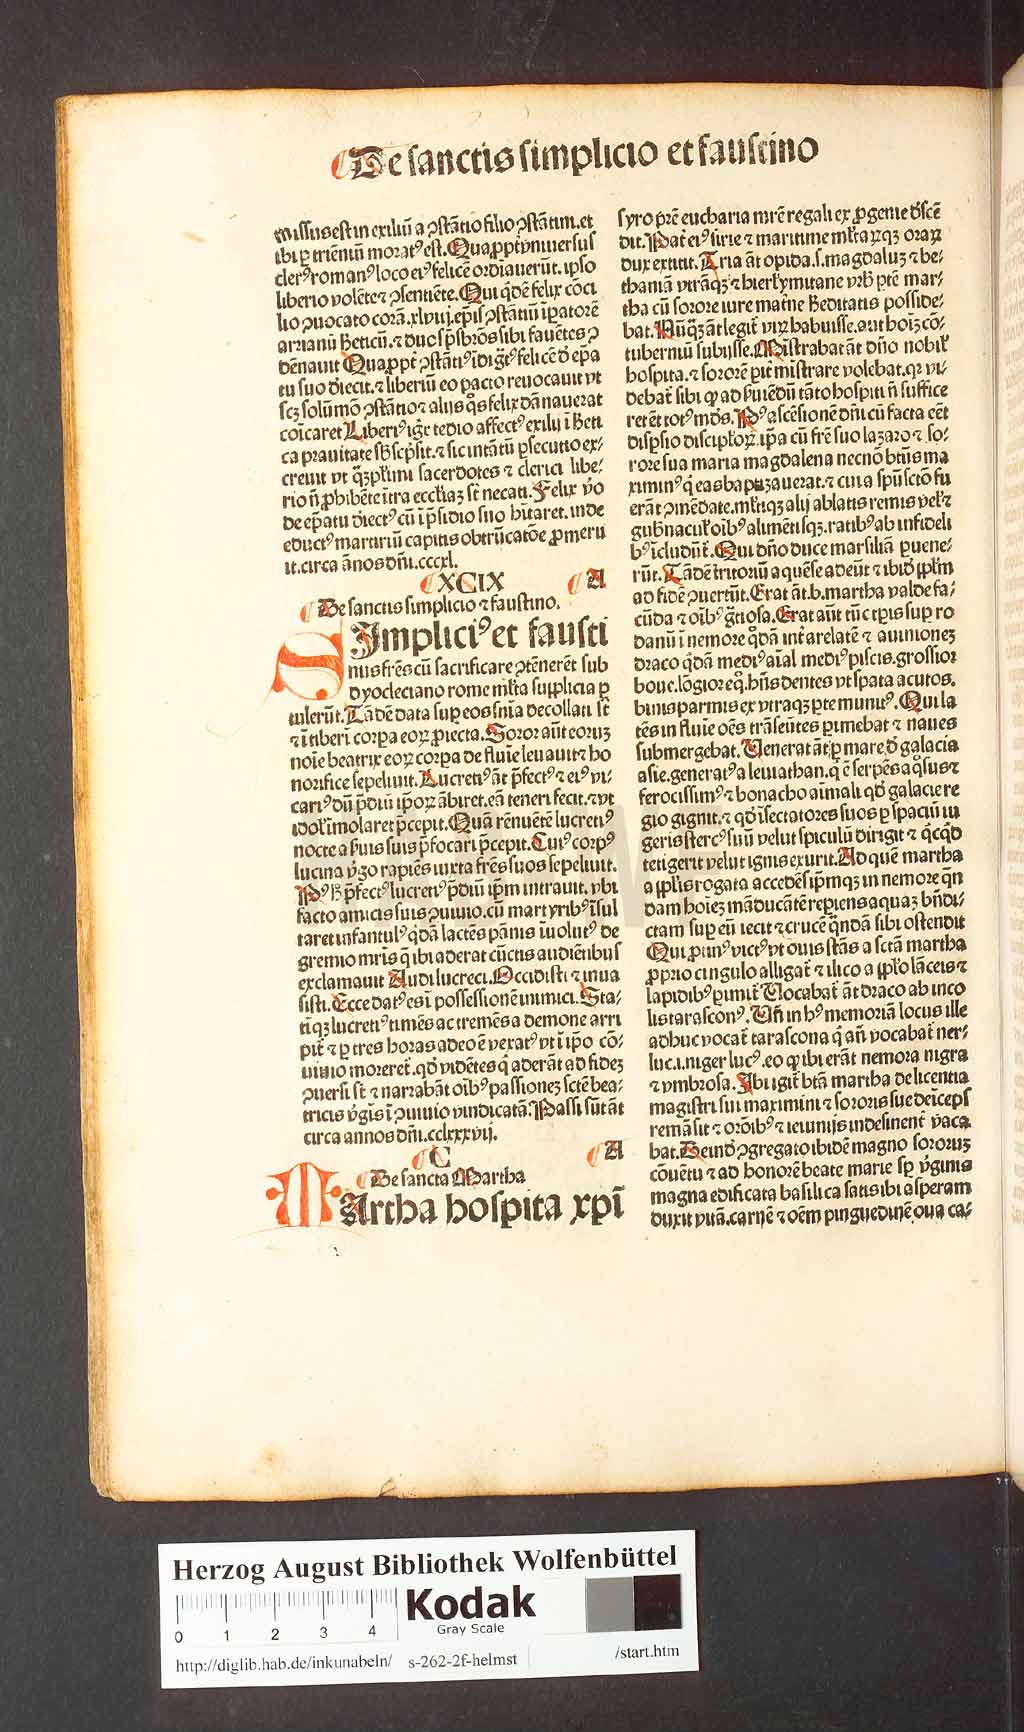 De sanctis simplicio et faustino
missus est in exiliū a ꝯstātio filio ꝯstātini. et
ibi ꝑ trienniū moratꝰ est. Quapropt̄ vniuersus
clerꝰ romanꝰ loco eiꝰ felicē ordiauerūt. ipso
liberio volēte ⁊ ꝯsentiēte. Qui qͥdē felix cōci
lio ꝯuocato corā .xlviij. ep̄is ꝯstātiū īꝑatorē
arrianū hereticū. ⁊ duos p̄sbr̄os sibi fauētes ꝯ
dēnauit Quaꝓpt̄ ꝯstātiꝰ īdigr̄ felicē d̄ ep̄a
tu suo dieecit. ⁊ liberiū eo pacto reuocauit vt
scꝫ solūmō ꝯstātio ⁊ alijs qͦs felix dānauerat
coīcaret Liberiꝰ igr̄ tedio affectꝰ exilij ī heti
ca prauitate sb̄scp̄sit. ⁊ sic intātū ꝑsecutio ex⸗
creuit vt qͣꝫplimi sacerdotes ⁊ clerici libe⸗
rio nō ꝓhibēte ītra eccl̄iaꝫ st̄ necati. Felix v̄o
de ep̄atu dieectꝰ cū ī p̄sidio suo hītaret. inde
eductꝰ martiriū capitis obtrūcatōe ꝓmeru
it. circa ānos dn̄i .cccxl.
XCIX A
De sanctis simplicio ⁊ faustino.
SImpliciꝰ et fausti
nus frēs cū sacrificare ꝯtēnerēt sub
dyocleciano rome ml̄ta supplicia ꝑ
tulerūt. Tādē data suꝑ eos sn̄ia decollati st̄
⁊ ī tiberī corpa eoꝝ ꝓiecta. Soror aūt eoruꝫ
noīe beatrix eoꝝ corpa de fluīe leuauit ⁊ ho
norifice sepeliuit. Lucretiꝰ āt p̄fectꝰ ⁊ eiꝰ vi⸗
cariꝰ dū p̄diū ip̄oꝝ ābiret. eā teneri fecit. ⁊ vt
idol̄ īmolaret p̄cepit. Quā rēnuētē lucretiꝰ
nocte a suis suis p̄focari p̄cepit. Cuiꝰ corpꝰ
lucina v̄go rapiēs iuxta frēs suos sepeliuit.
Pꝰ h̄ p̄fectꝰ lucretiꝰ p̄diū ip̄m intrauit. vbi
facto amicis suis ꝯuiuio. cū martyribꝰ īsul
taret infantulꝰ qͥdā lactēs pānis īuolutꝰ de
gremio mr̄is qͥ ibi aderat cūctis audiētibus
exclamauit Audi lucreci. Occidisti ⁊ inua
sisti. Ecce datꝰ es ī possessionē inimici. Sta⸗
tīqꝫ lucretiꝰ timēs ac tremēs a demone arri
pit̄ ⁊ ꝑ tres horas adeo ē vexatꝰ vt ī ipo cō⸗
uiuio moreret̄. qd̄ vidētes qͥ aderāt ad fideꝫ
ꝯuersi st̄ ⁊ narrabāt oībꝰ passioneꝫ sctē bea⸗
tricis v̄gīs ī ꝯuiuio vindicatā. Passi sūt āt
circa annos dn̄i .cclxxxvij.
C A
De sancta Martha
MArtha hospita xp̄i
syro pr̄e eucharia mr̄e regali ex ꝓgenie d̄scē
dit. Pat̄ eiꝰ sirie ⁊ maritime ml̄taꝝqꝫ oraꝝ
dux extitit. Tria āt opida .s. magdaluꝫ ⁊ be⸗
thaniā vtrāqꝫ ⁊ hierl̄ymitane vrb̄ ptē mar⸗
tha cū sorore iure mat̄ne heditatis posside⸗
bat. Nūqͣꝫ āt legit̄ viꝝ habuisse. aut hoīꝫ cō⸗
tuberniū subijsse. Mīstrabat āt dn̄o nobil̄
hospita. ⁊ sororē pit̄ mīstrare volebat. qꝛ vi⸗
debat̄ sibi ꝙ ad suiēdū tāto hospiti nō suffice
ret ēt totꝰ mūdꝰ. Pꝰ ascēsionē dn̄i cū facta eēt
disꝑsio discipl̄oꝝ. ip̄a cū fr̄e suo lazaro ⁊ so⸗
rore sua maria magdalena necnō btūs ma
ximinꝰ qͥ eas baptizauerat. ⁊ cui a spū sctō fu
erāt ꝯmēdate. ml̄tiqꝫ alij ablatis remis vel̄ ⁊
gub̄nacul̄ oībꝰ alimētisqꝫ. ratibꝰ ab infideli
bꝰ īcludūt̄. Qui dn̄o duce marsiliā ꝑuene⸗
rūt. Tādē ī tritoriū aquēse adeūt ⁊ ibid̄ pp̄lm
ad fidē ꝯuertūt. Erat āt b. martha valde fa⸗
cūda ⁊ oībꝰ gr̄tiosa. Erat aūt tūc tp̄is suꝑ ro
danū ī nemore qͦdā int̄ arelatē ⁊ auinioneꝫ
draco qͥdā mediꝰ aīal mediꝰ piscis. grossior
boue. lōgior eqͦ. hn̄s dentes vt spata acutos.
binis parmis ex vtraqꝫ pte munitꝰ. Qui la
tēs in fluīe oēs trāseūtes ꝑimebat ⁊ naues
submergebat. Venerat āt ꝑ mare d̄ galacia
asie. generatꝰ a leuiathan. qͥ ē serpēs aqͦsus ⁊
ferocissimꝰ ⁊ bonacho aīmali qd̄ galacie re
gio gignit. ⁊ qd̄ īsectatores suos ꝑ spaciū iu
geris stercꝰ suū velut spiculū dirigit ⁊ qͥcqͥd
tetigerit velut ignis exurit. Ad quē martha
a pp̄lis rogata accedēs ip̄mqꝫ in nemore qͥn
dam hoīeꝫ māducātē repiens aquaꝫ bn̄di⸗
ctam suꝑ eū iecit ⁊ crucē qͣndā sibi ostendit
Qui ꝓtinꝰ victꝰ vt ouis stās a sctā martha
ꝓprio cingulo alligat̄ ⁊ ilico a pp̄lo lāceis ⁊
lapidibꝰ ꝑimit̄ Vocabat̄ āt draco ab inco
lis tarasconꝰ. Vn̄ in hꝰ memoriā locus ille
adhuc vocat̄ tarascona qͥ an̄ vocabat̄ ner⸗
luc .i. niger lucꝰ. eo ꝙ ibi erāt nemora nigra
⁊ vmbrosa. Ibi igit̄ btā martha de licentia
magistri sui maximini ⁊ sororis sue deīceps
remāsit ⁊ orōibꝰ ⁊ ieiunijs indesinent̄ vaca
bat. Deind̄ ꝯgregato ibidē magno sororuꝫ
cōuētu ⁊ ad honorē beate marie sp̄ v̄ginis
magna edificata basilica satis ibi asperam
duxit vitā. carnē ⁊ oēm pinguedinē oua ca⸗
Herzog August Bibliothek Wolfenbüttel
0 1 2 3 4
Kodak
Gray Scale
http://diglib.hab.de/inkunabeln/ s-262-2f-helmst /start.htm